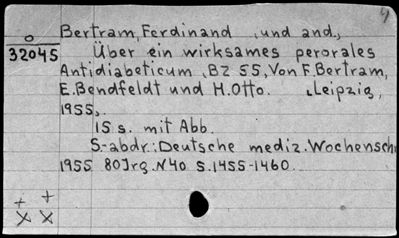 4
Bertram, Ferdinand , und and.,
0
32045
Über ein wirksames perorales
Antidiabeticum, BZ 55, Von F. Bertram,
E. Bendfeldt und H. Otto. , Leipzig,
1955,.
15 s. mit Abb.
S.-abdr.: Deutsche mediz. Wochensch
1955 80 Jrg. N 40 S. 1455-1460.
+ +
X X